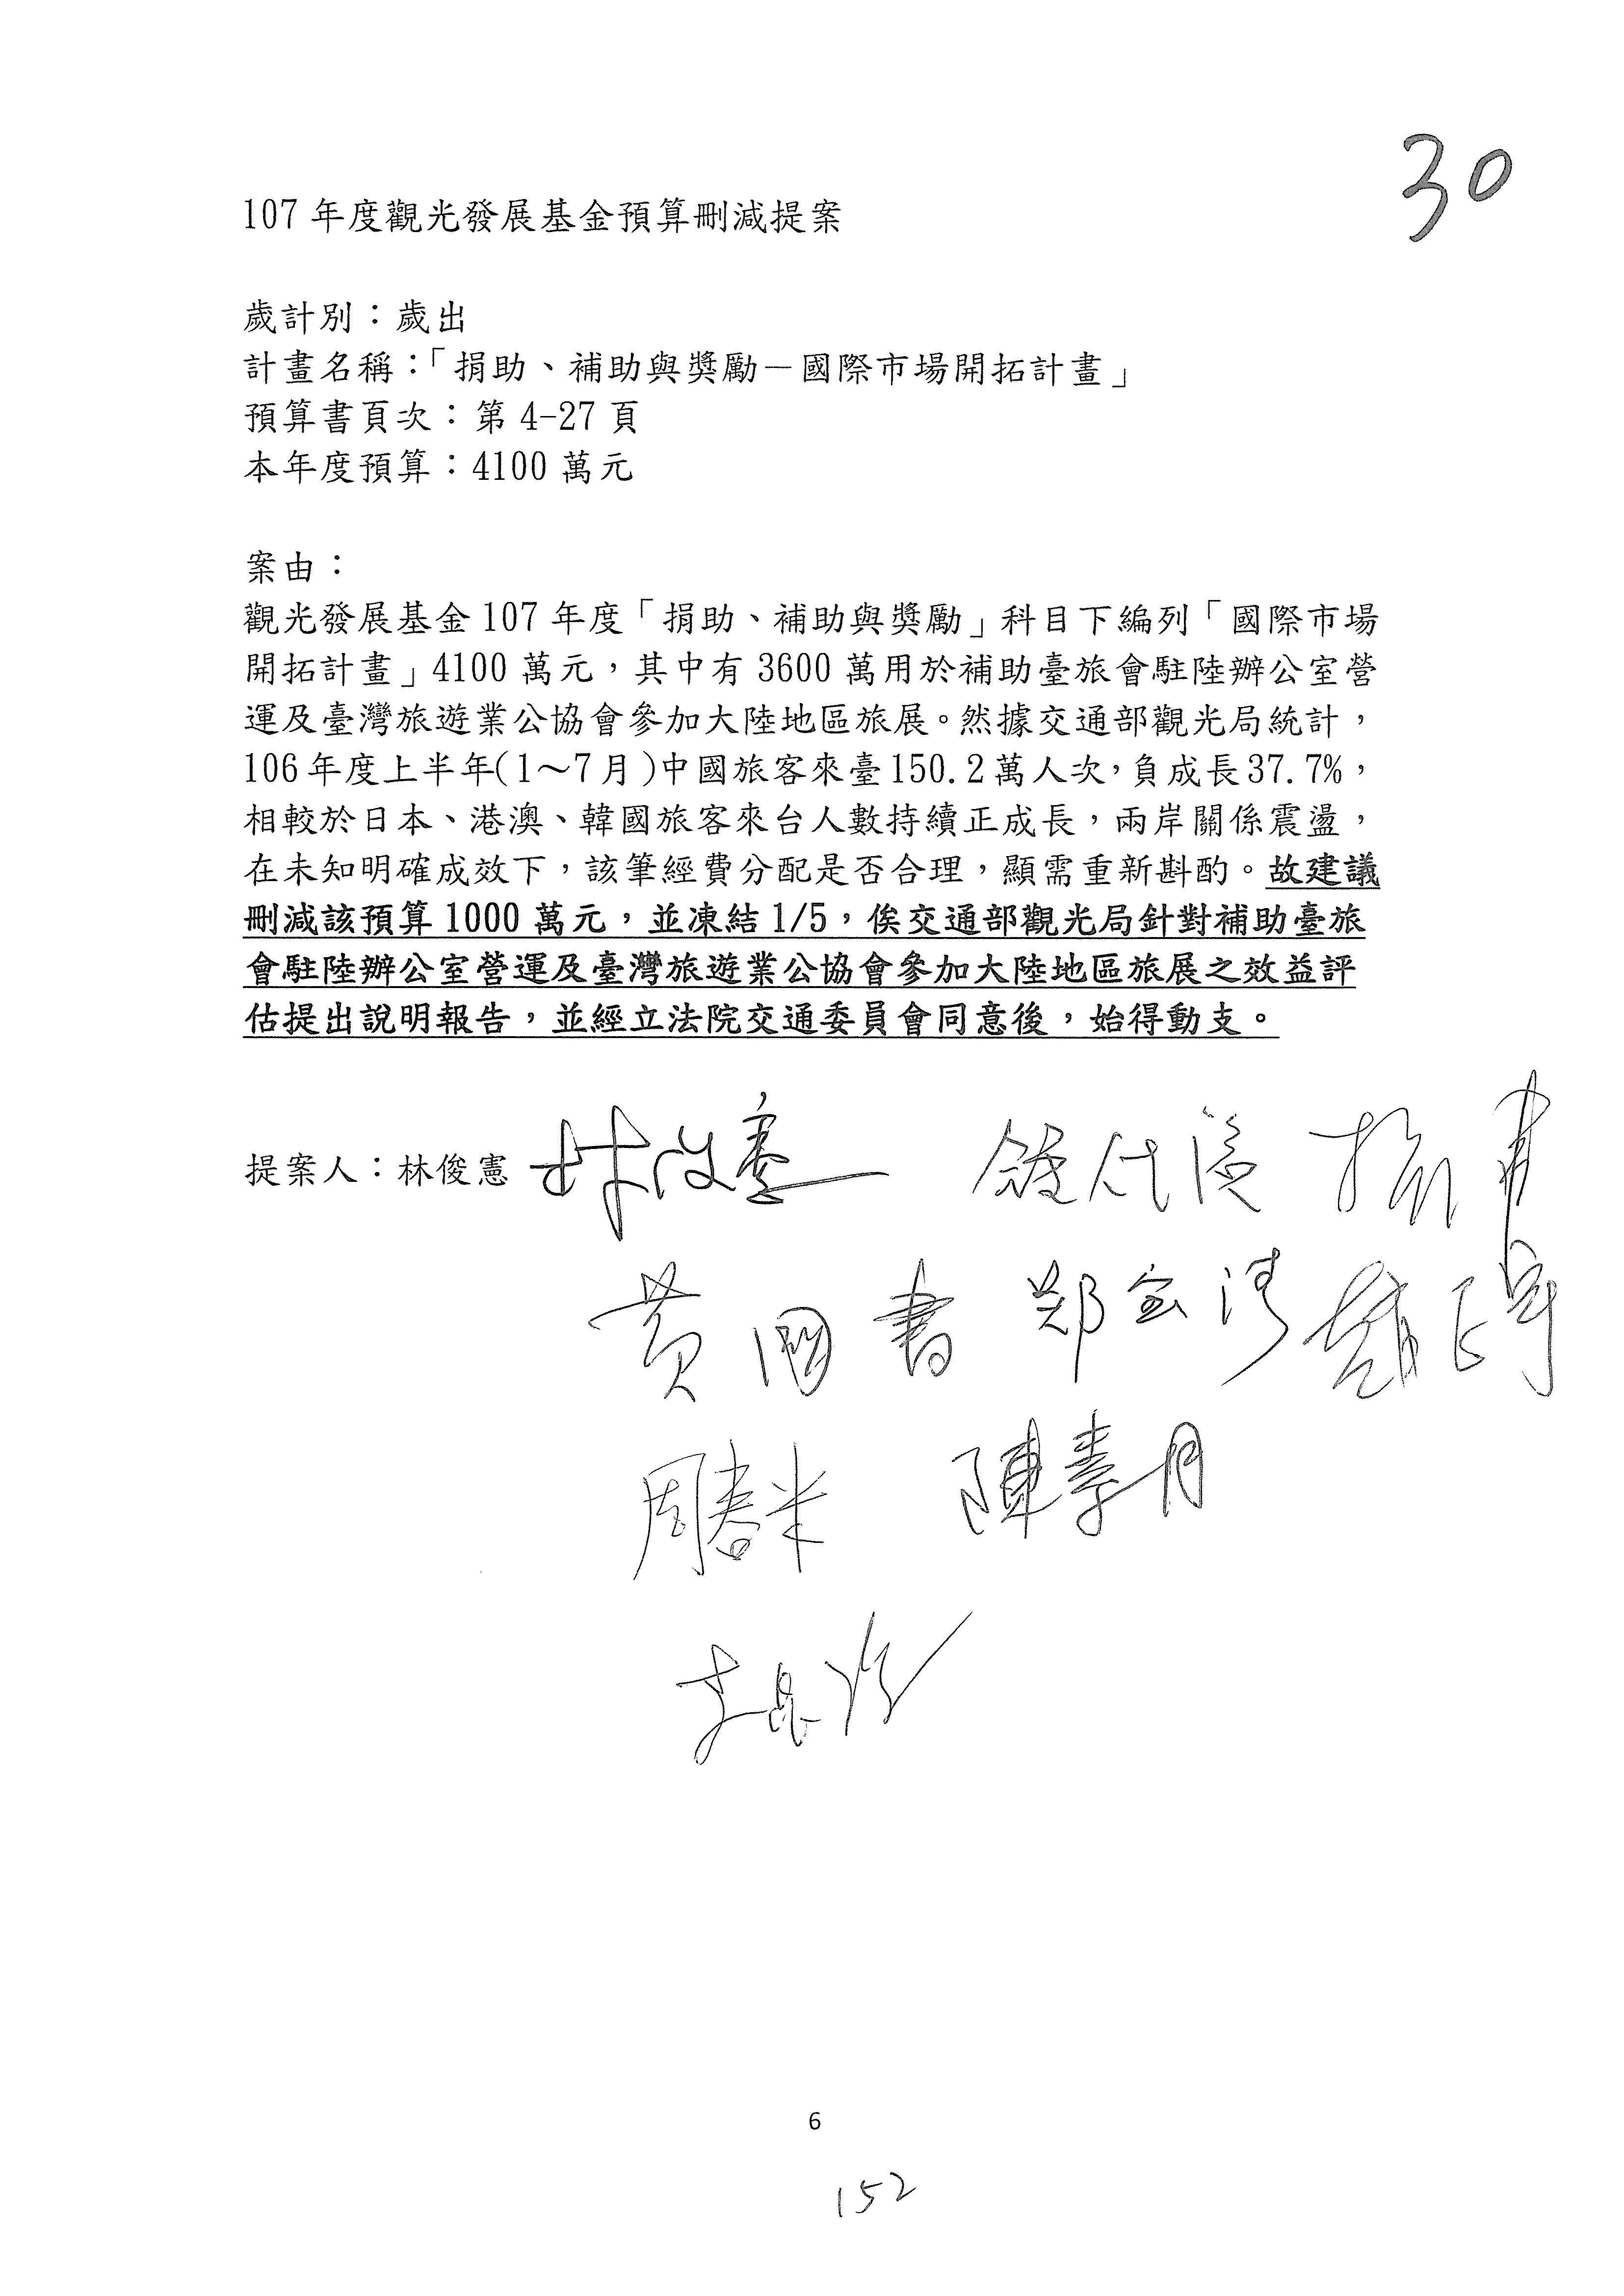 30
107 年度觀光發展基金預算刪減提案
歲計別：歲出
計畫名稱：「捐助、補助與獎勵－國際市場開拓計畫」
預算書頁次：第 4-27 頁
本年度預算：4100 萬元
案由：
觀光發展基金 107 年度「捐助、補助與獎勵」科目下編列「國際市場
開拓計畫」4100 萬元，其中有 3600 萬用於補助臺旅會駐陸辦公室營
運及臺灣旅遊業公協會參加大陸地區旅展。然據交通部觀光局統計，
106 年度上半年(1～7 月)中國旅客來臺 150.2 萬人次，負成長 37.7%，
相較於日本、港澳、韓國旅客來台人數持續正成長，兩岸關係震盪，
在未知明確成效下，該筆經費分配是否合理，顯需重新斟酌。故建議
刪減該預算 1000 萬元，並凍結 1/5，俟交通部觀光局針對補助臺旅
會駐陸辦公室營運及臺灣旅遊業公協會參加大陸地區旅展之效益評
估提出說明報告，並經立法院交通委員會同意後，始得動支。
提案人：林俊憲 林俊憲
黃國書 鄭宝清 趙正宇
周春米 陳素月
李昆澤
6
152